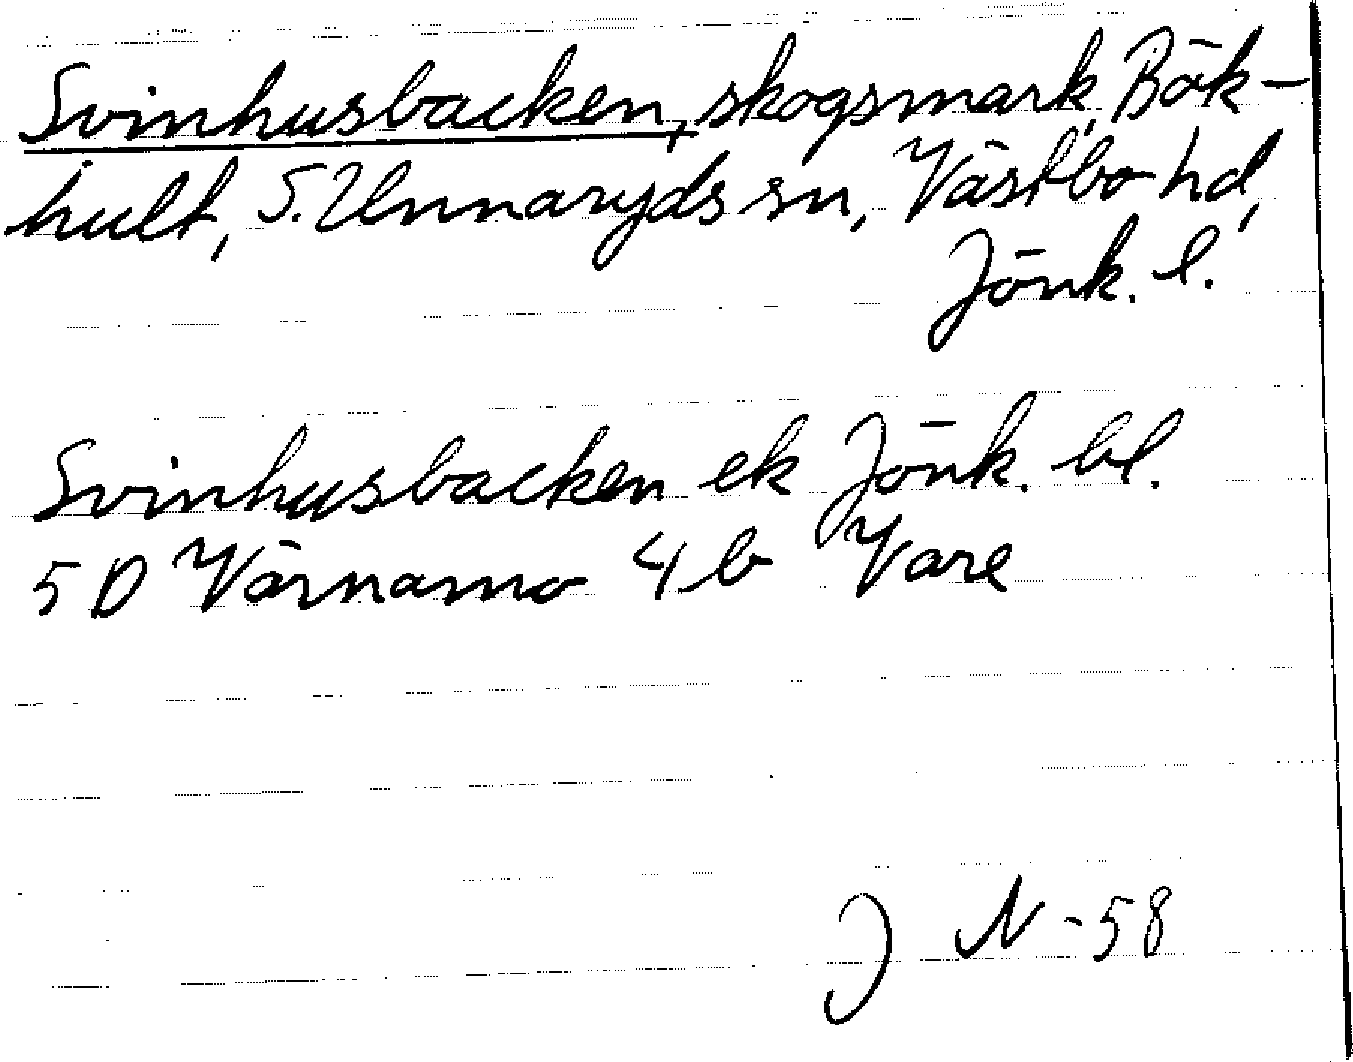 Svinhusbacken, skogsmark, Bök-
hult, S. Unnaryds sn, Västbo hd,
Jönk. l.
Svinhusbacken ek Jönk. bl.
5 D Värnamo 4 b Vare
J N-58